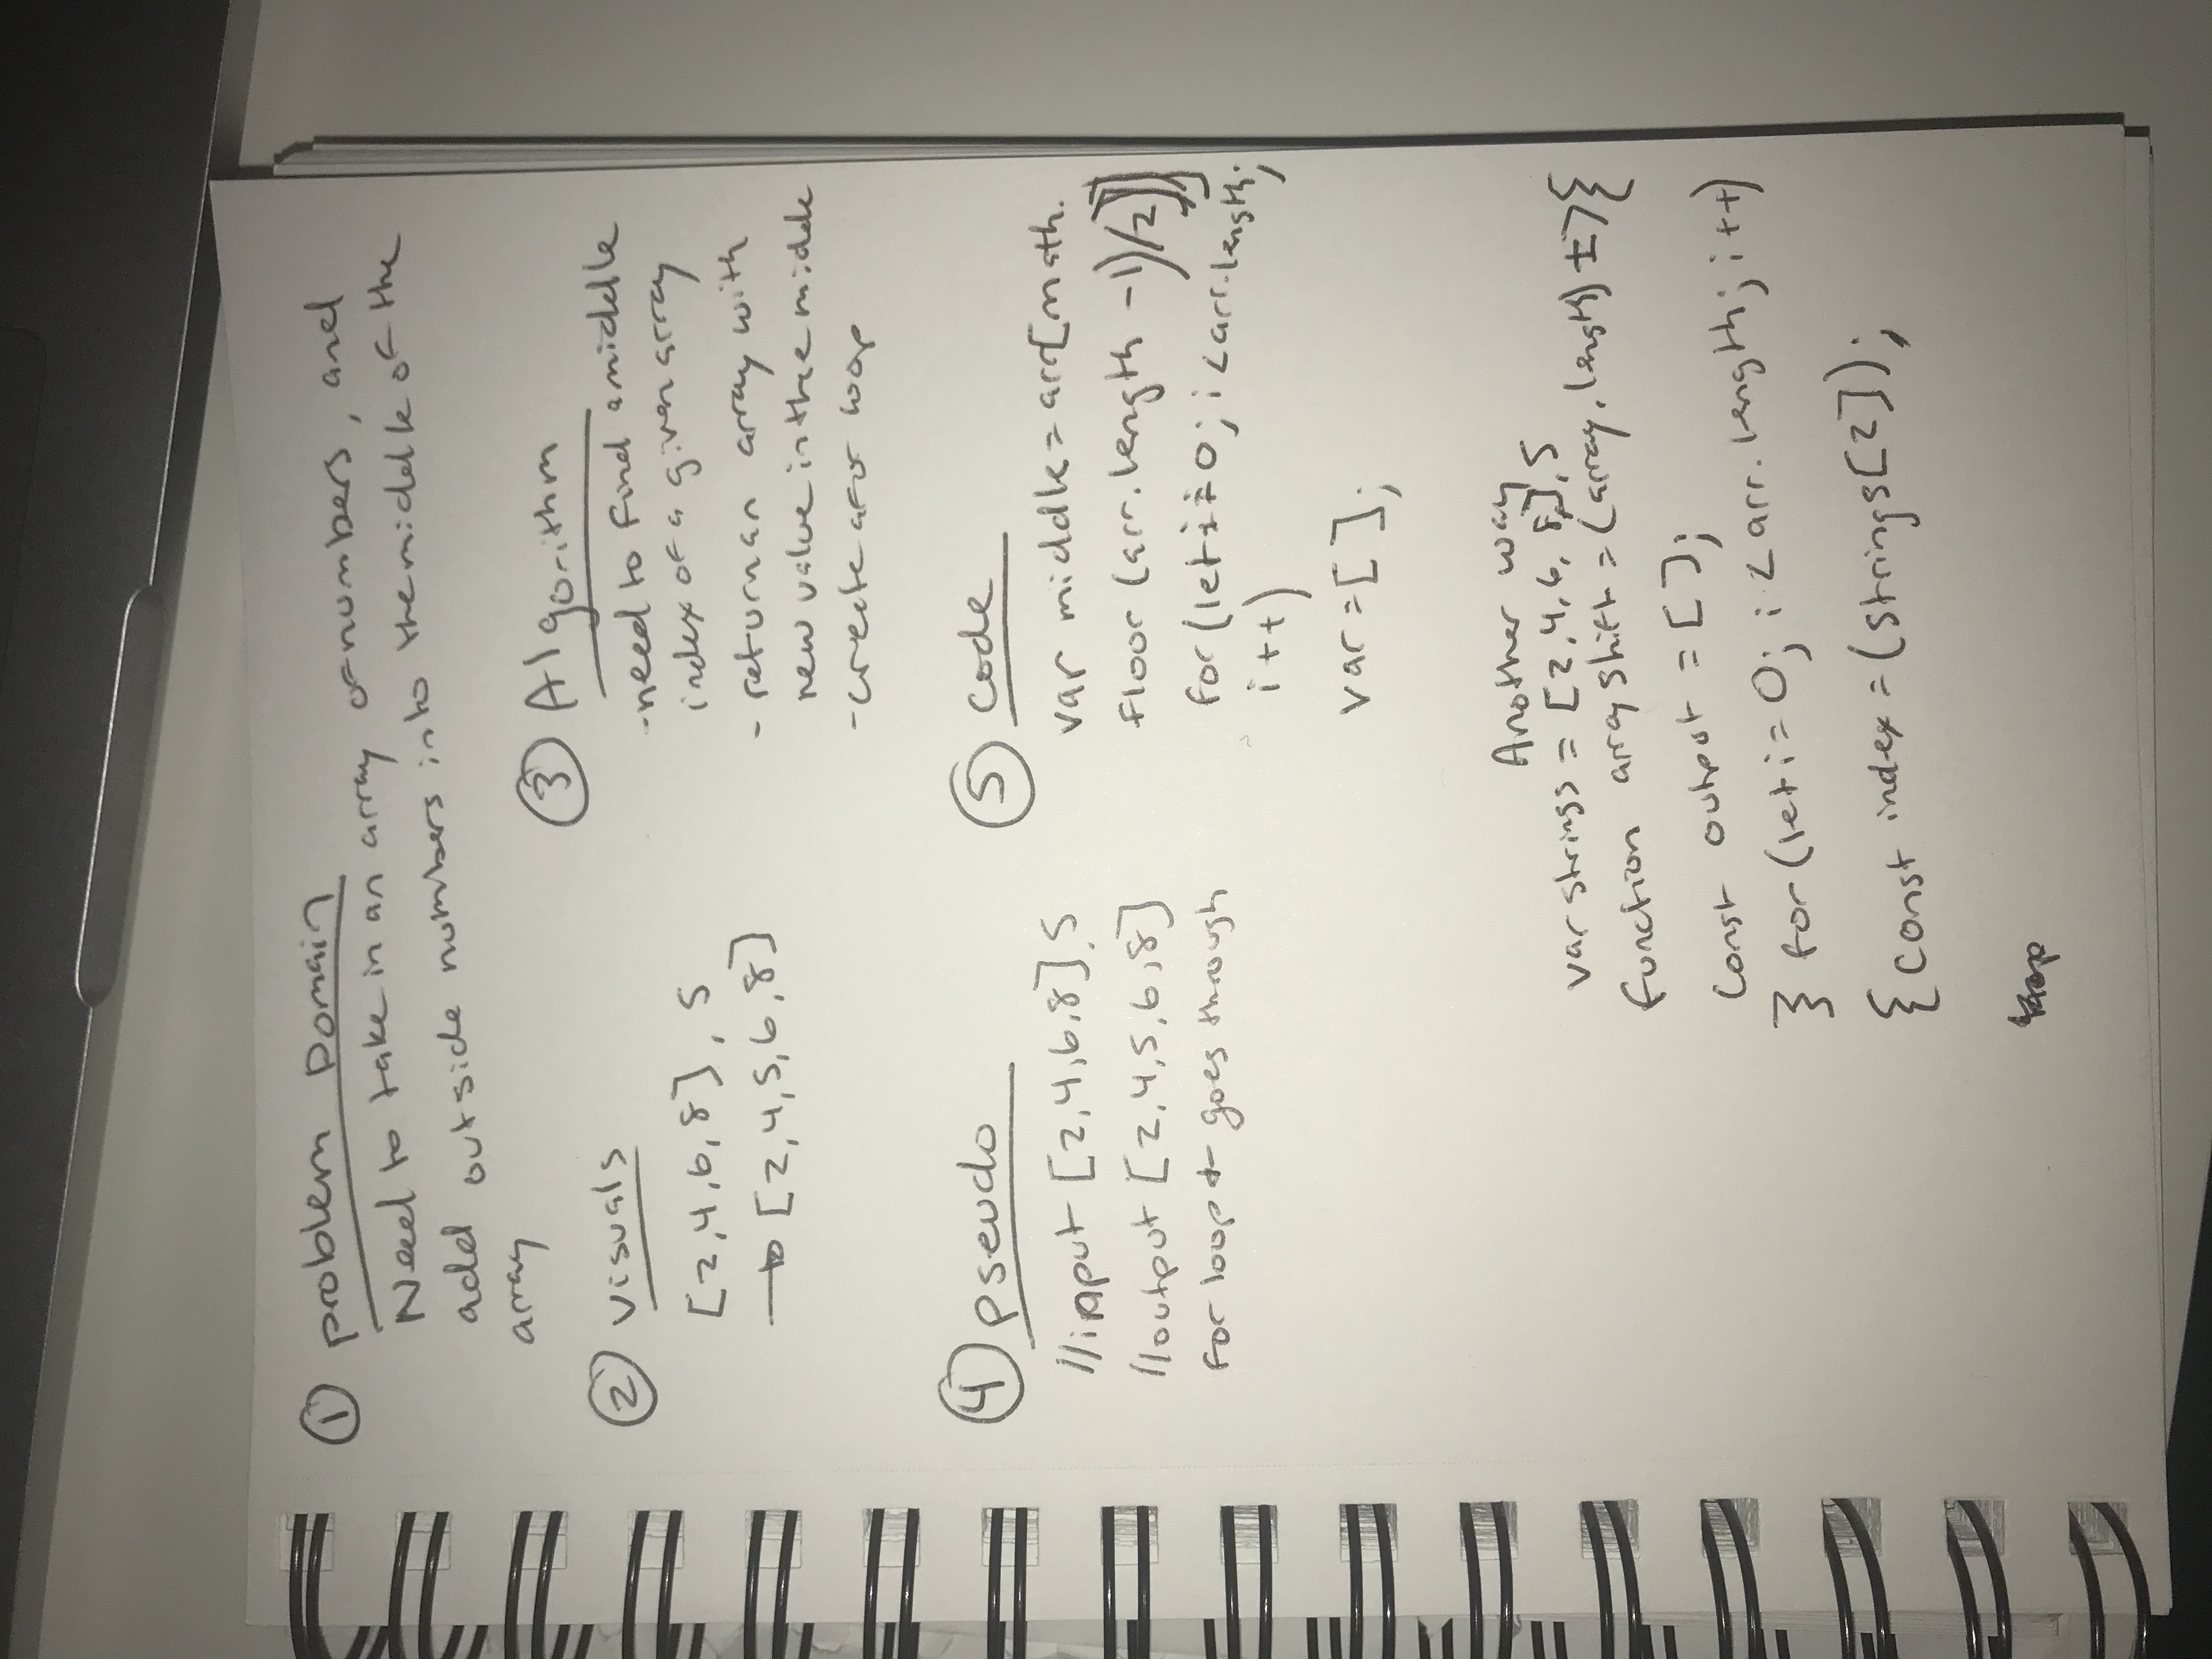 ① problem Domain
Need to take in an array of numbers, and
add outside numbers into the middle of the
array
② visuals
[2,4,6,8], 5
→ [2,4,5,6,8]
③ Algorithm
-need to find a middle
index of a given array
- return an array with
new value in the middle
-create a for loop
④ pseudo
//input [2,4,6,8], 5
//output [2,4,5,6,8]
for loop goes through
⑤ code
var middle = arr[math.
floor (arr.length -1)/2]]
for (let i = 0; i < arr.length;
i ++)
var = [ ];
Another way
var strings = [2,4,6, 8], 5
function array shift = (array, length) => {
const output = [ ];
} for (let i = 0; i < arr. length; i ++)
{ const index = (strings[2]);